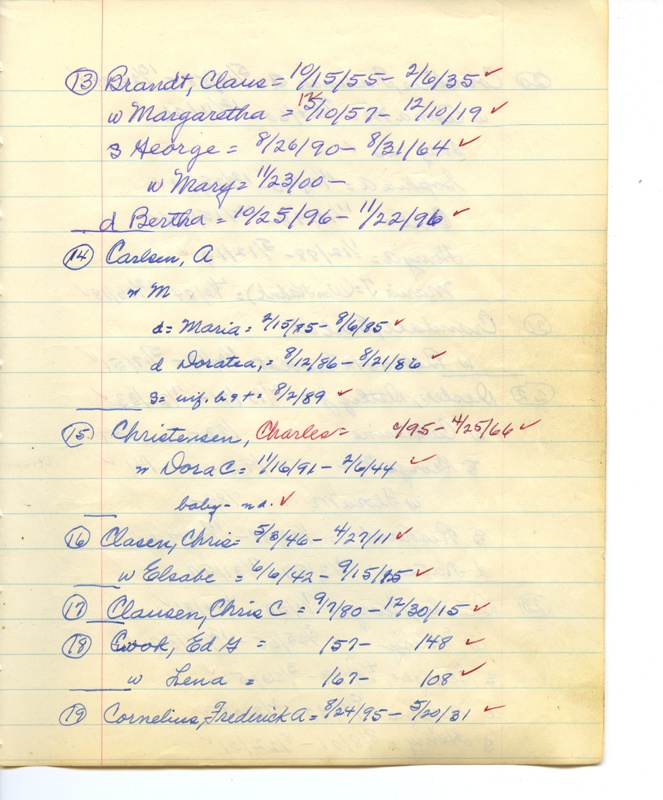 (13) Brandt, Claus = 10/15/55 - 2/6/35 ✓
w Margaretha = 12/10/57 - 12/10/19 ✓
s George = 8/26/90 - 8/31/64 ✓
w Mary = 11/23/00 -
d Bertha = 10/25/96 - 11/22/96 ✓
(14) Carlsen, A
w M
d = Maria = 2/15/85 - 8/6/85 ✓
d Doratea, = 8/12/86 - 8/21/86 ✓
s = inf. b & + = 8/2/89 ✓
(15) Christensen, Charles = c/95 - 4/25/66 ✓
w Dora C = 11/16/91 - 2/6/44 ✓
baby - nd. ✓
(16) Clasen, Chris = 5/3/46 - 4/27/11 ✓
w Elsabe = 6/6/42 - 9/15/15 ✓
(17) Clausen, Chris C = 9/7/80 - 12/30/15 ✓
(18) Cook, Ed G = /57 - /48 ✓
w Lena = /67 - /08 ✓
(19) Cornelius, Frederick A = 8/24/95 - 5/20/31 ✓